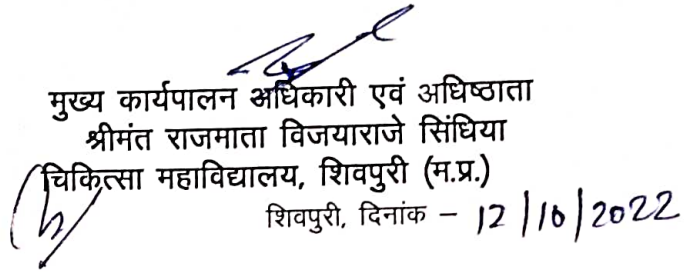 मुख्य कार्यपालन अधिकारी एवं अधिष्ठाता
श्रीमंत राजमाता विजयाराजे सिंधिया
चिकित्सा महाविद्यालय, शिवपुरी (म.प्र.)
शिवपुरी, दिनांक – 12/10/2022